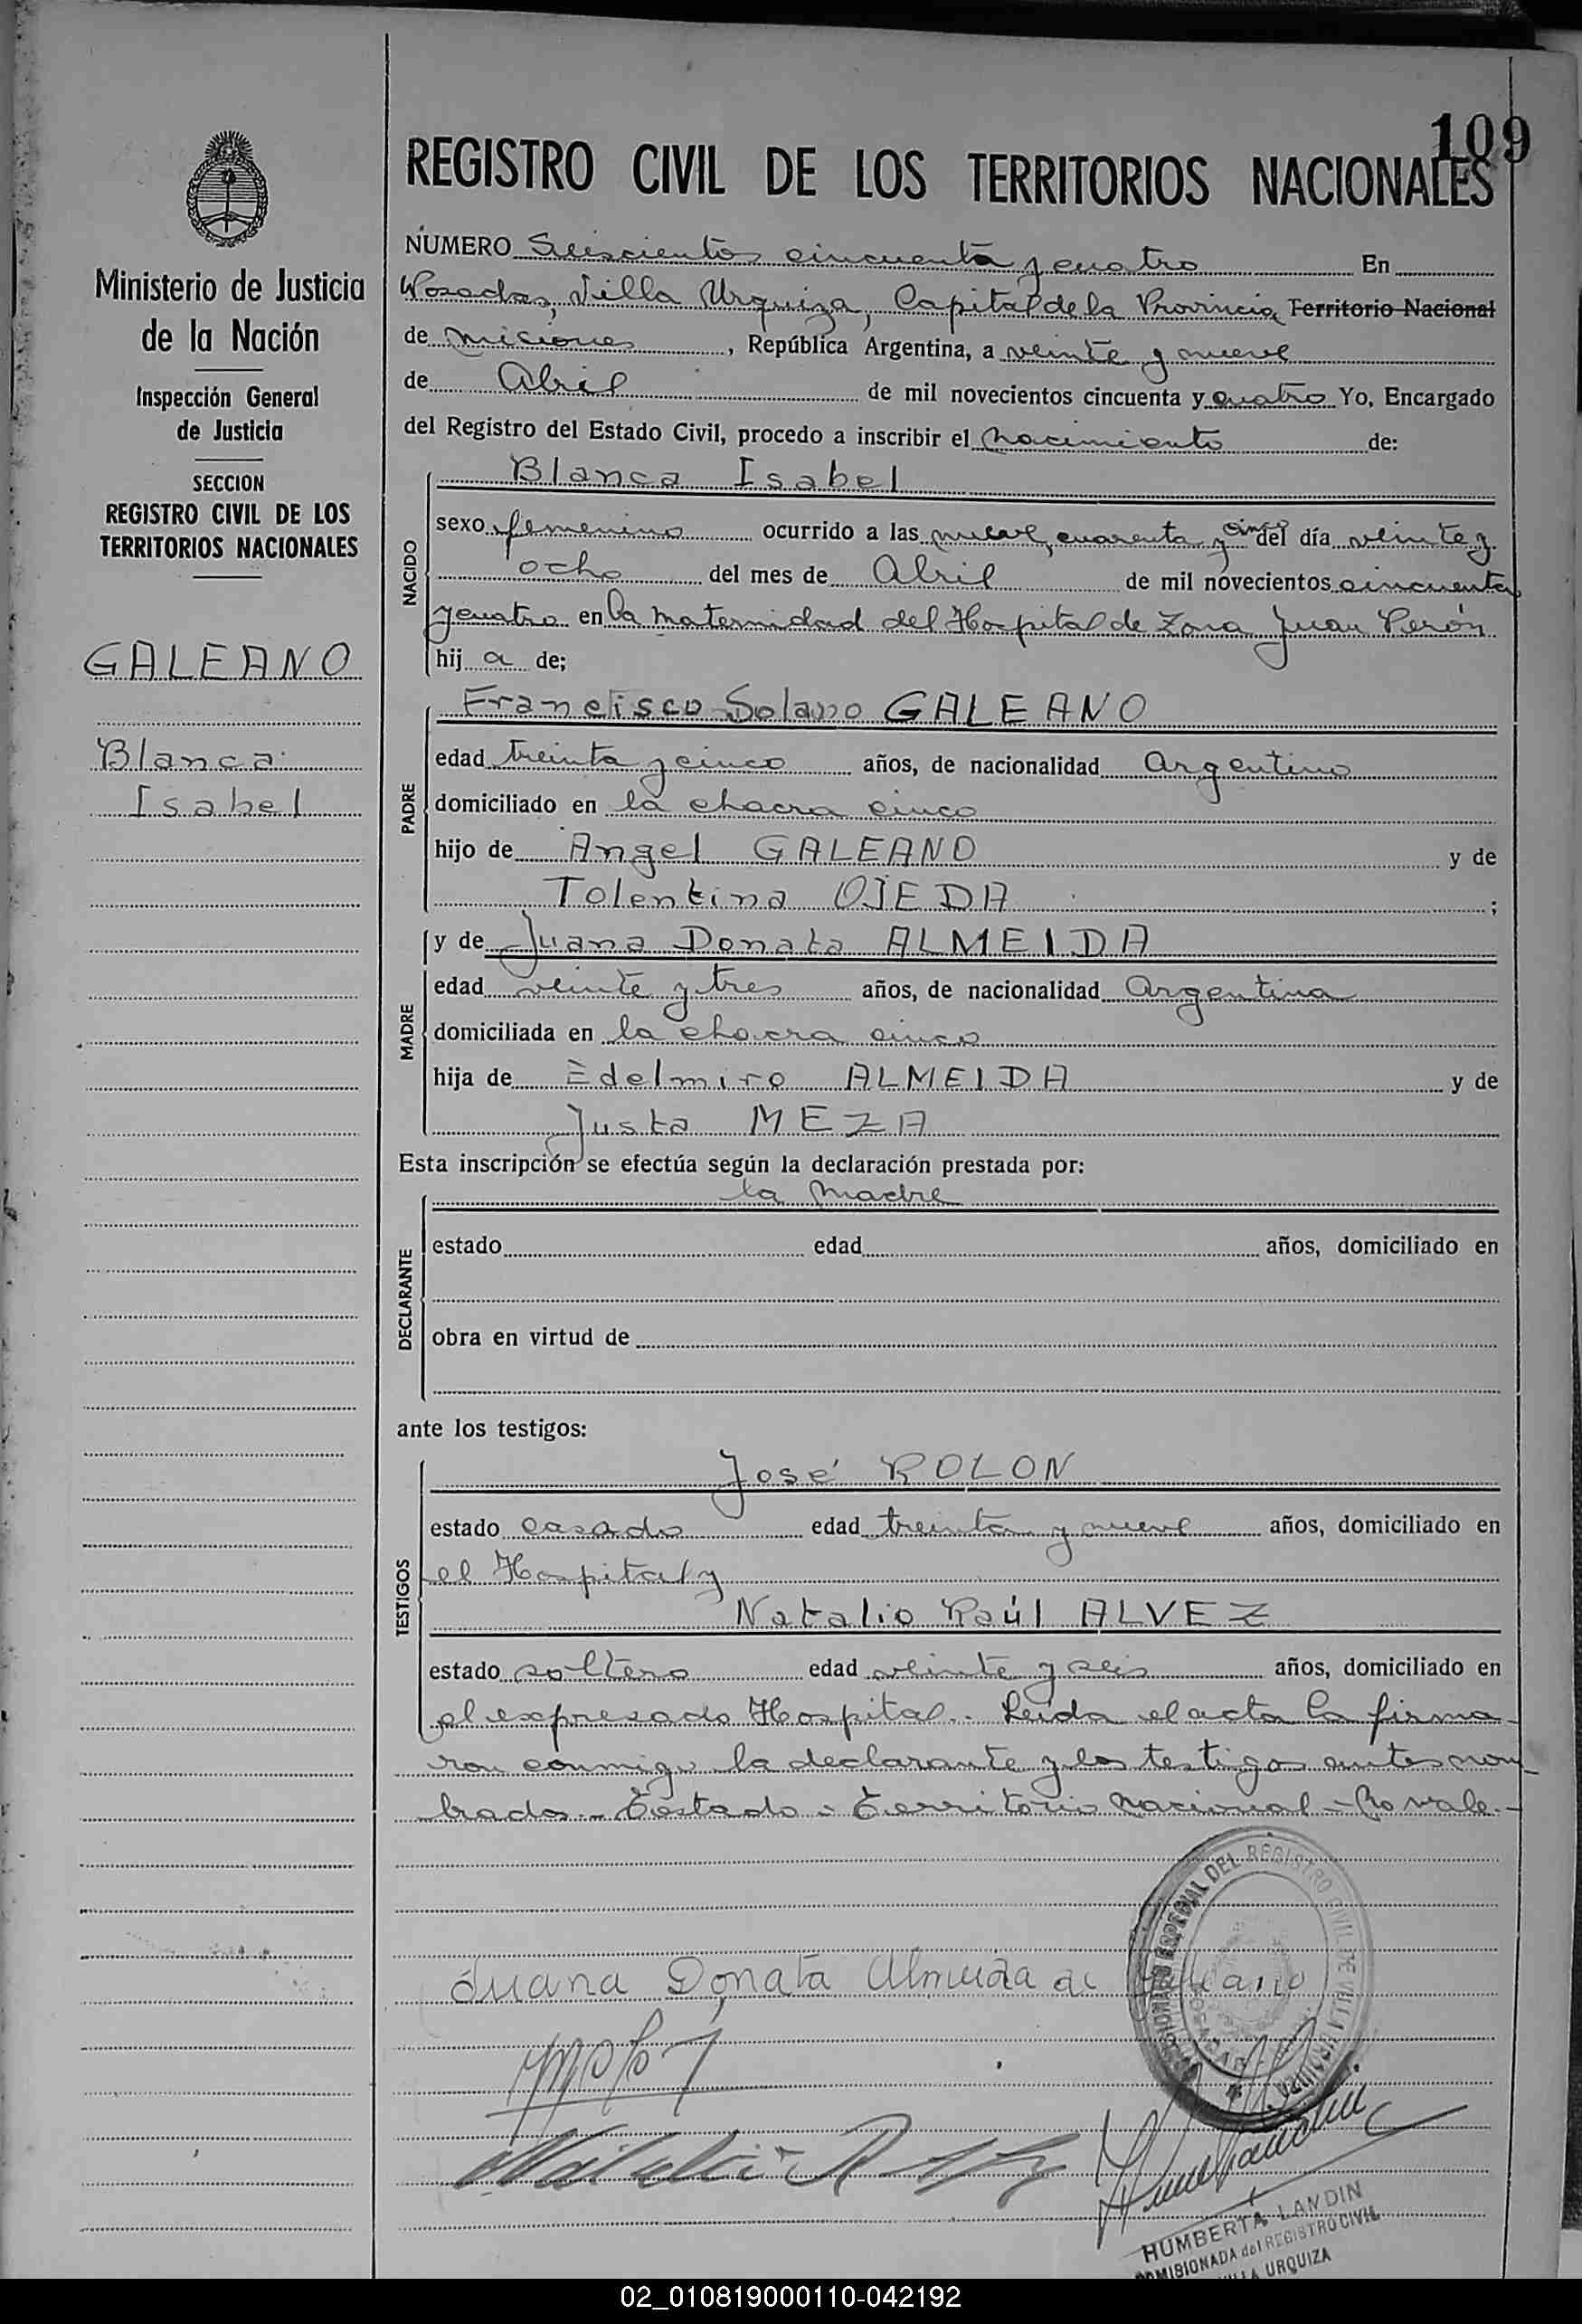 109
REGISTRO CIVIL DE LOS TERRITORIOS NACIONALES
Ministerio de Justicia
de la Nación
Inspección General
de Justicia
SECCION
REGISTRO CIVIL DE LOS
TERRITORIOS NACIONALES
GALEANO
Blanca
Isabel
NUMERO Seiscientos cincuenta y cuatro En
Posadas, Villa Urquiza, Capital de la Provincia Territorio Nacional
de Misiones, República Argentina, a veinte y nueve
de Abril de mil novecientos cincuenta y cuatro Yo, Encargado
del Registro del Estado Civil, procedo a inscribir el nacimiento de:
Blanca Isabel
NACIDO
sexo femenino ocurrido a las nueve, cuarenta y cinco del día veinte y
ocho del mes de Abril de mil novecientos cincuenta
y cuatro en la Maternidad del Hospital de Zona Juan Perón
hij a de;
Francisco Solano GALEANO
PADRE
edad treinta y cinco años, de nacionalidad Argentino
domiciliado en la chacra cinco
hijo de Angel GALEANO y de
Tolentina OJEDA ;
y de Juana Donata ALMEIDA
MADRE
edad veinte y tres años, de nacionalidad Argentina
domiciliada en la chacra cinco
hija de Edelmiro ALMEIDA y de
Justa MEZA
Esta inscripción se efectúa según la declaración prestada por:
la Madre
DECLARANTE
estado edad años, domiciliado en
obra en virtud de
ante los testigos:
José ROLON
TESTIGOS
estado casado edad treinta y nueve años, domiciliado en
el Hospital y
Natalio Raúl ALVEZ
estado soltero edad veinte y seis años, domiciliado en
el expresado Hospital.. Leida el acta la firma-
ron conmigo la declarante y los testigos antes nom-
brados.- Testado - Territorio Nacional - No vale.-
Juana Donata Almeida de Galeano
HUMBERTA LANDIN
COMISIONADA del REGISTRO CIVIL
VILLA URQUIZA
02_010819000110-042192